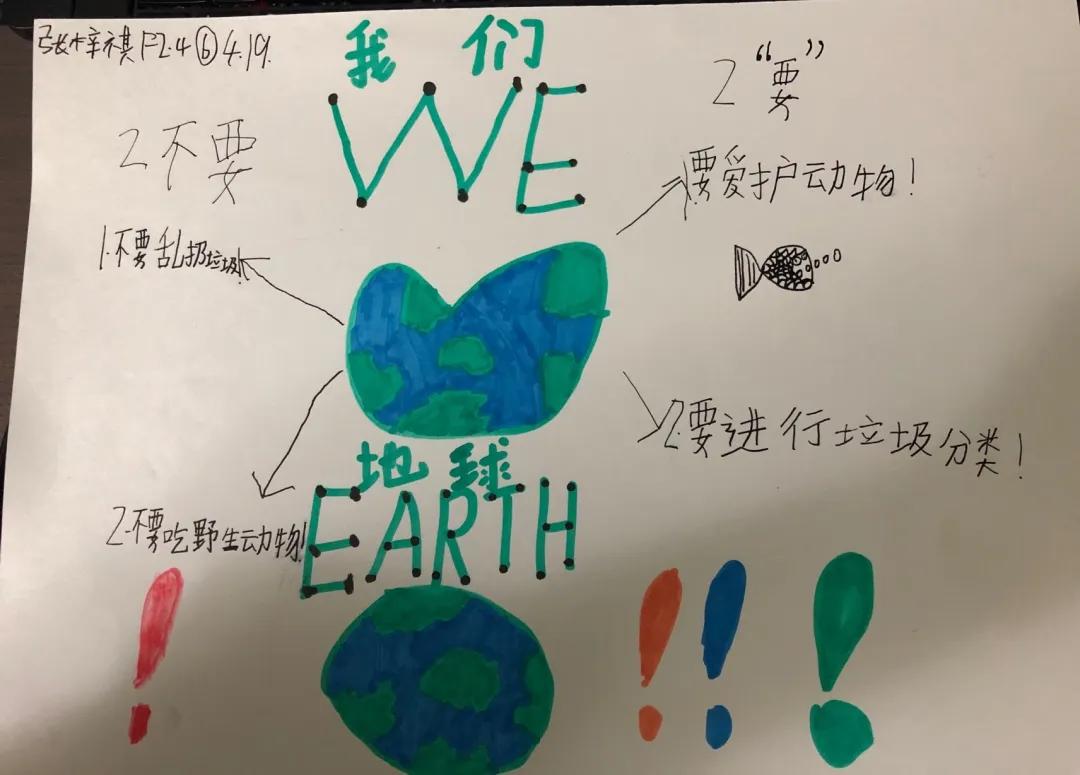 张梓祺 F2.4 ⑥ 4.19.
我们
WE
2不要
2“要”
1.不要乱扔垃圾!
1.要爱护动物!
2.要进行垃圾分类!
地球
EARTH
2.不要吃野生动物!
!
!!!